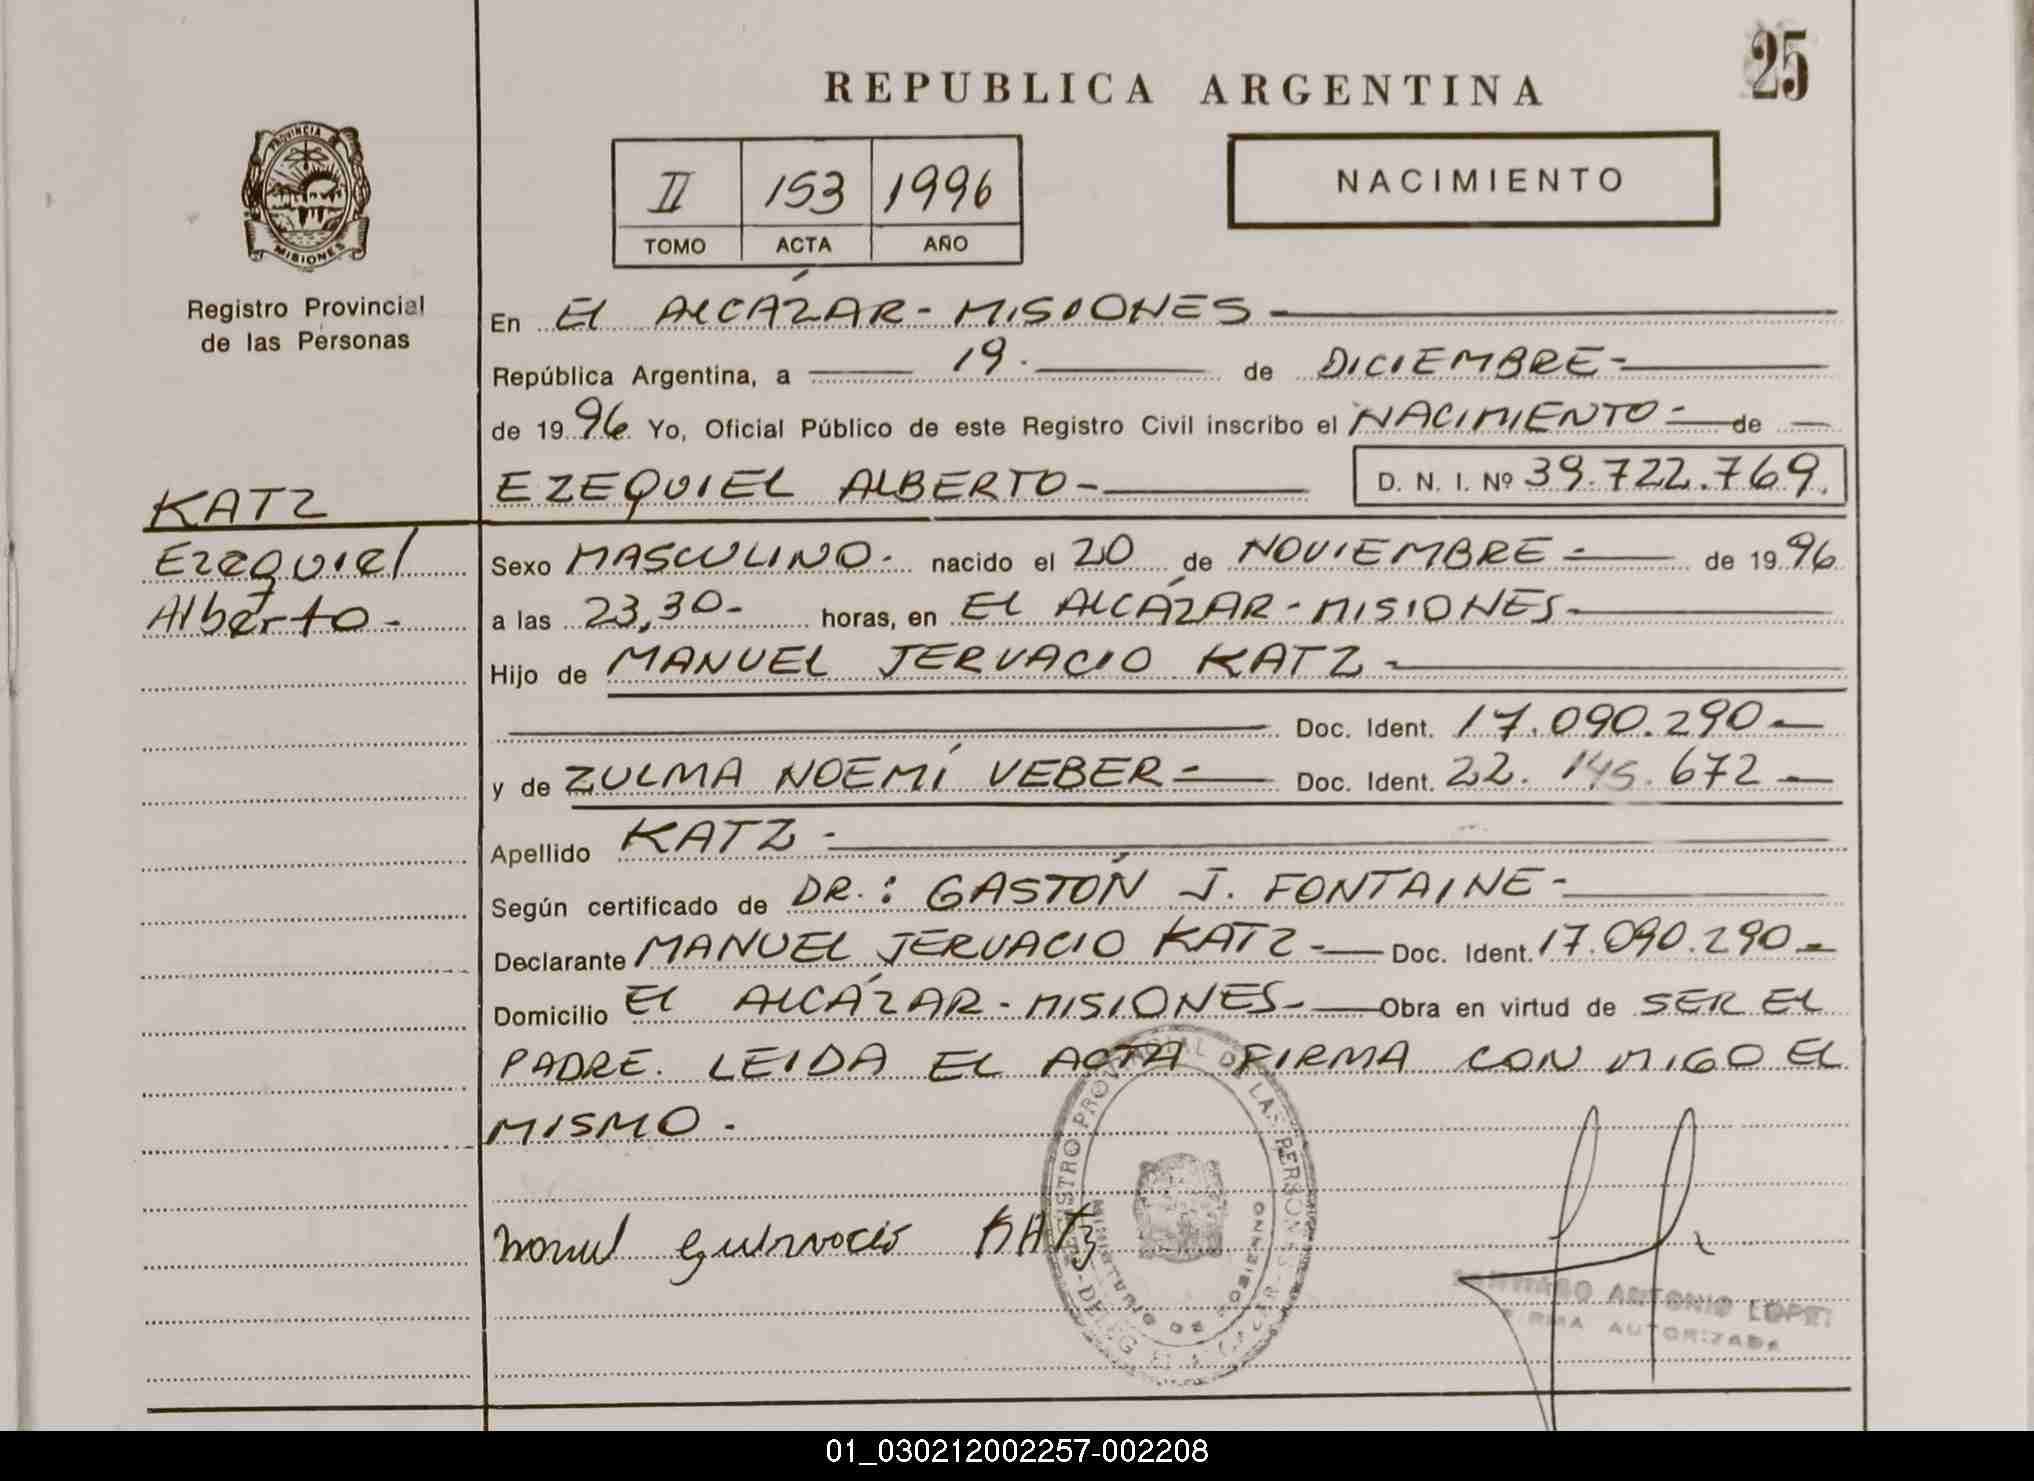 25
REPUBLICA ARGENTINA
PROVINCIA
MISIONES
II 153 1996
TOMO ACTA AÑO
NACIMIENTO
Registro Provincial
de las Personas
En El ALCÁZAR - MISIONES
República Argentina, a 19. de DICIEMBRE -
de 1996. Yo, Oficial Público de este Registro Civil inscribo el NACIMIENTO - de
EZEQUIEL ALBERTO - D. N. I. Nº 39.722.769.
KATZ
Ezequiel
Alberto -
Sexo MASCULINO - nacido el 20 de NOVIEMBRE - de 1996
a las 23,30 - horas, en EL ALCÁZAR - MISIONES -
Hijo de MANUEL JERVACIO KATZ -
Doc. Ident. 17.090.290 -
y de ZULMA NOEMÍ VEBER - Doc. Ident. 22.145.672 -
Apellido KATZ -
Según certificado de DR.: GASTÓN J. FONTAINE -
Declarante MANUEL JERVACIO KATZ - Doc. Ident. 17.090.290 -
Domicilio El ALCÁZAR - MISIONES - Obra en virtud de SER EL
PADRE. LEIDA EL ACTA FIRMA CON MIGO EL
MISMO -
REGISTRO PROVINCIAL DE LAS PERSONAS
MINISTERIO DE GOBIERNO
KATZ
ANTONIO LOPEZ
FIRMA AUTORIZADA
01_030212002257-002208